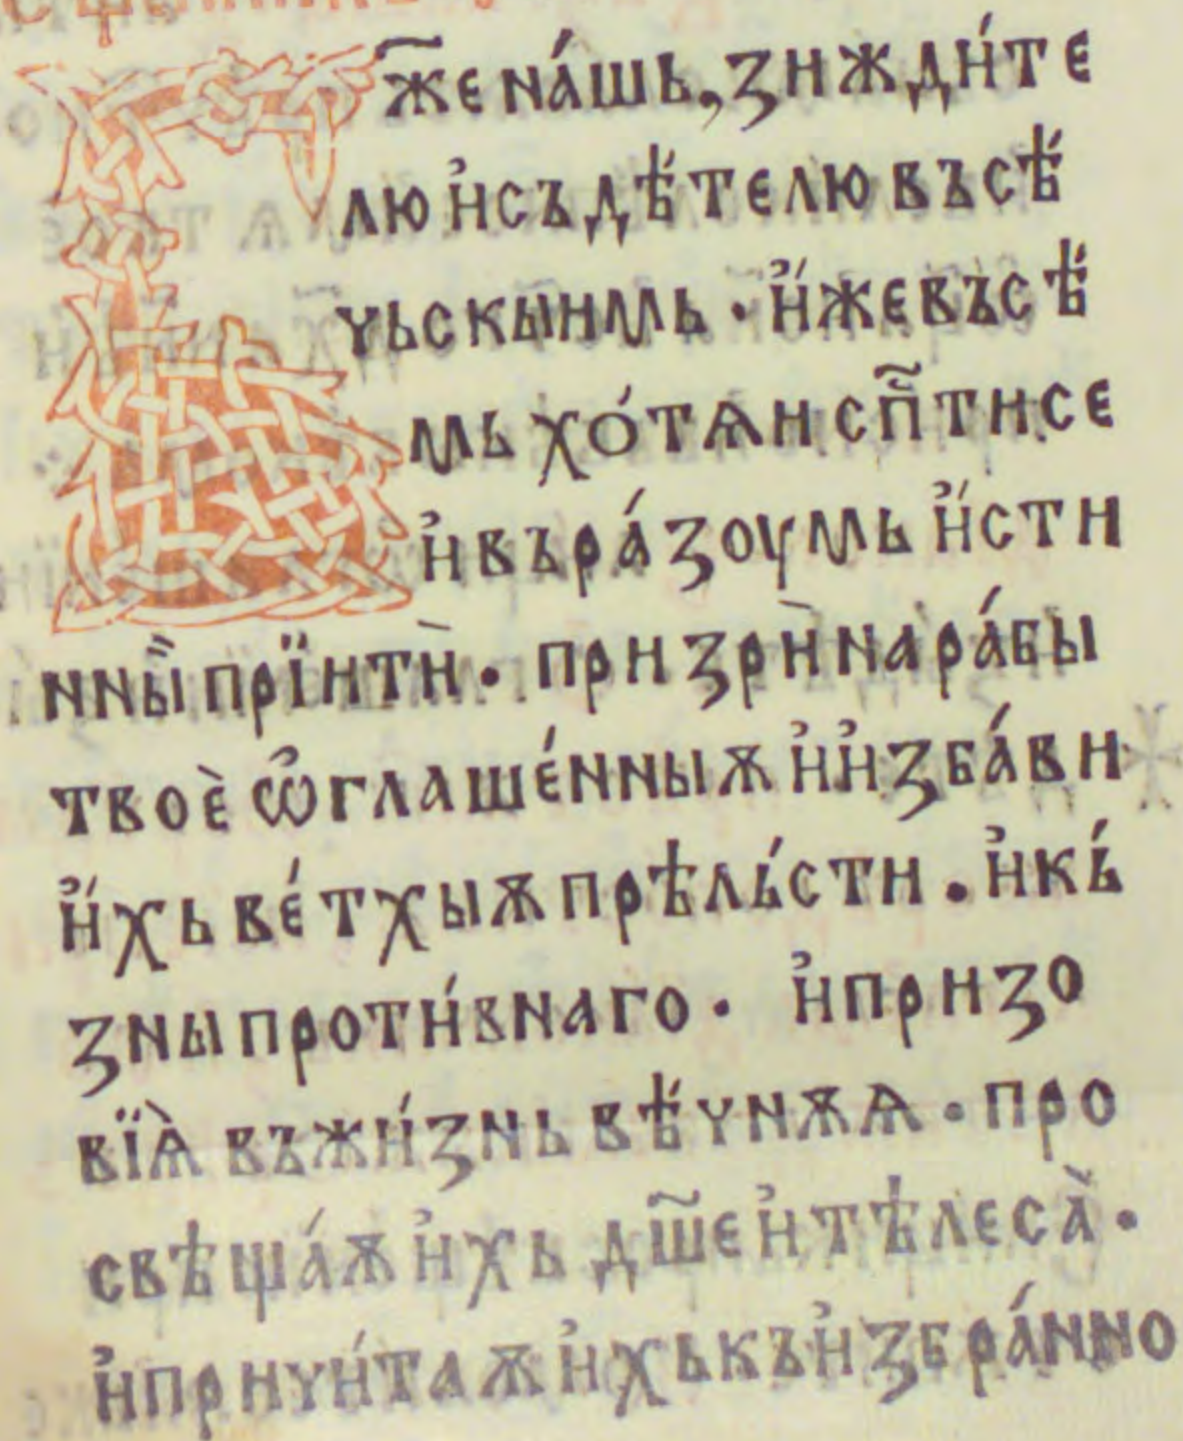 Б҃же на́шь, зижди́те
лю и҆съдѣ́телю въсѣ́
чьскыимь · и҆́жевъсѣ́
мь хо́тѧи сп҃тисе
и҆въра́зоумь и҆́сти
нны̏прїити̇̀ · призрѝнара́бы
твоѐ ѡ҆глаше́нныѫ и҆и҆зба́ви
и҆́хь ве́тхыѫпрѣль́сти · и҆къ́
зныпроти́внаго · и҆призо
вїѧ̀ въжи́знь вѣ́чнѫѧ · про
свѣща́ѫ и҆хь дш҃е и҆тѣлеса̀ ·
и҆причи́таѫ и҆хькъи҆збра́нно